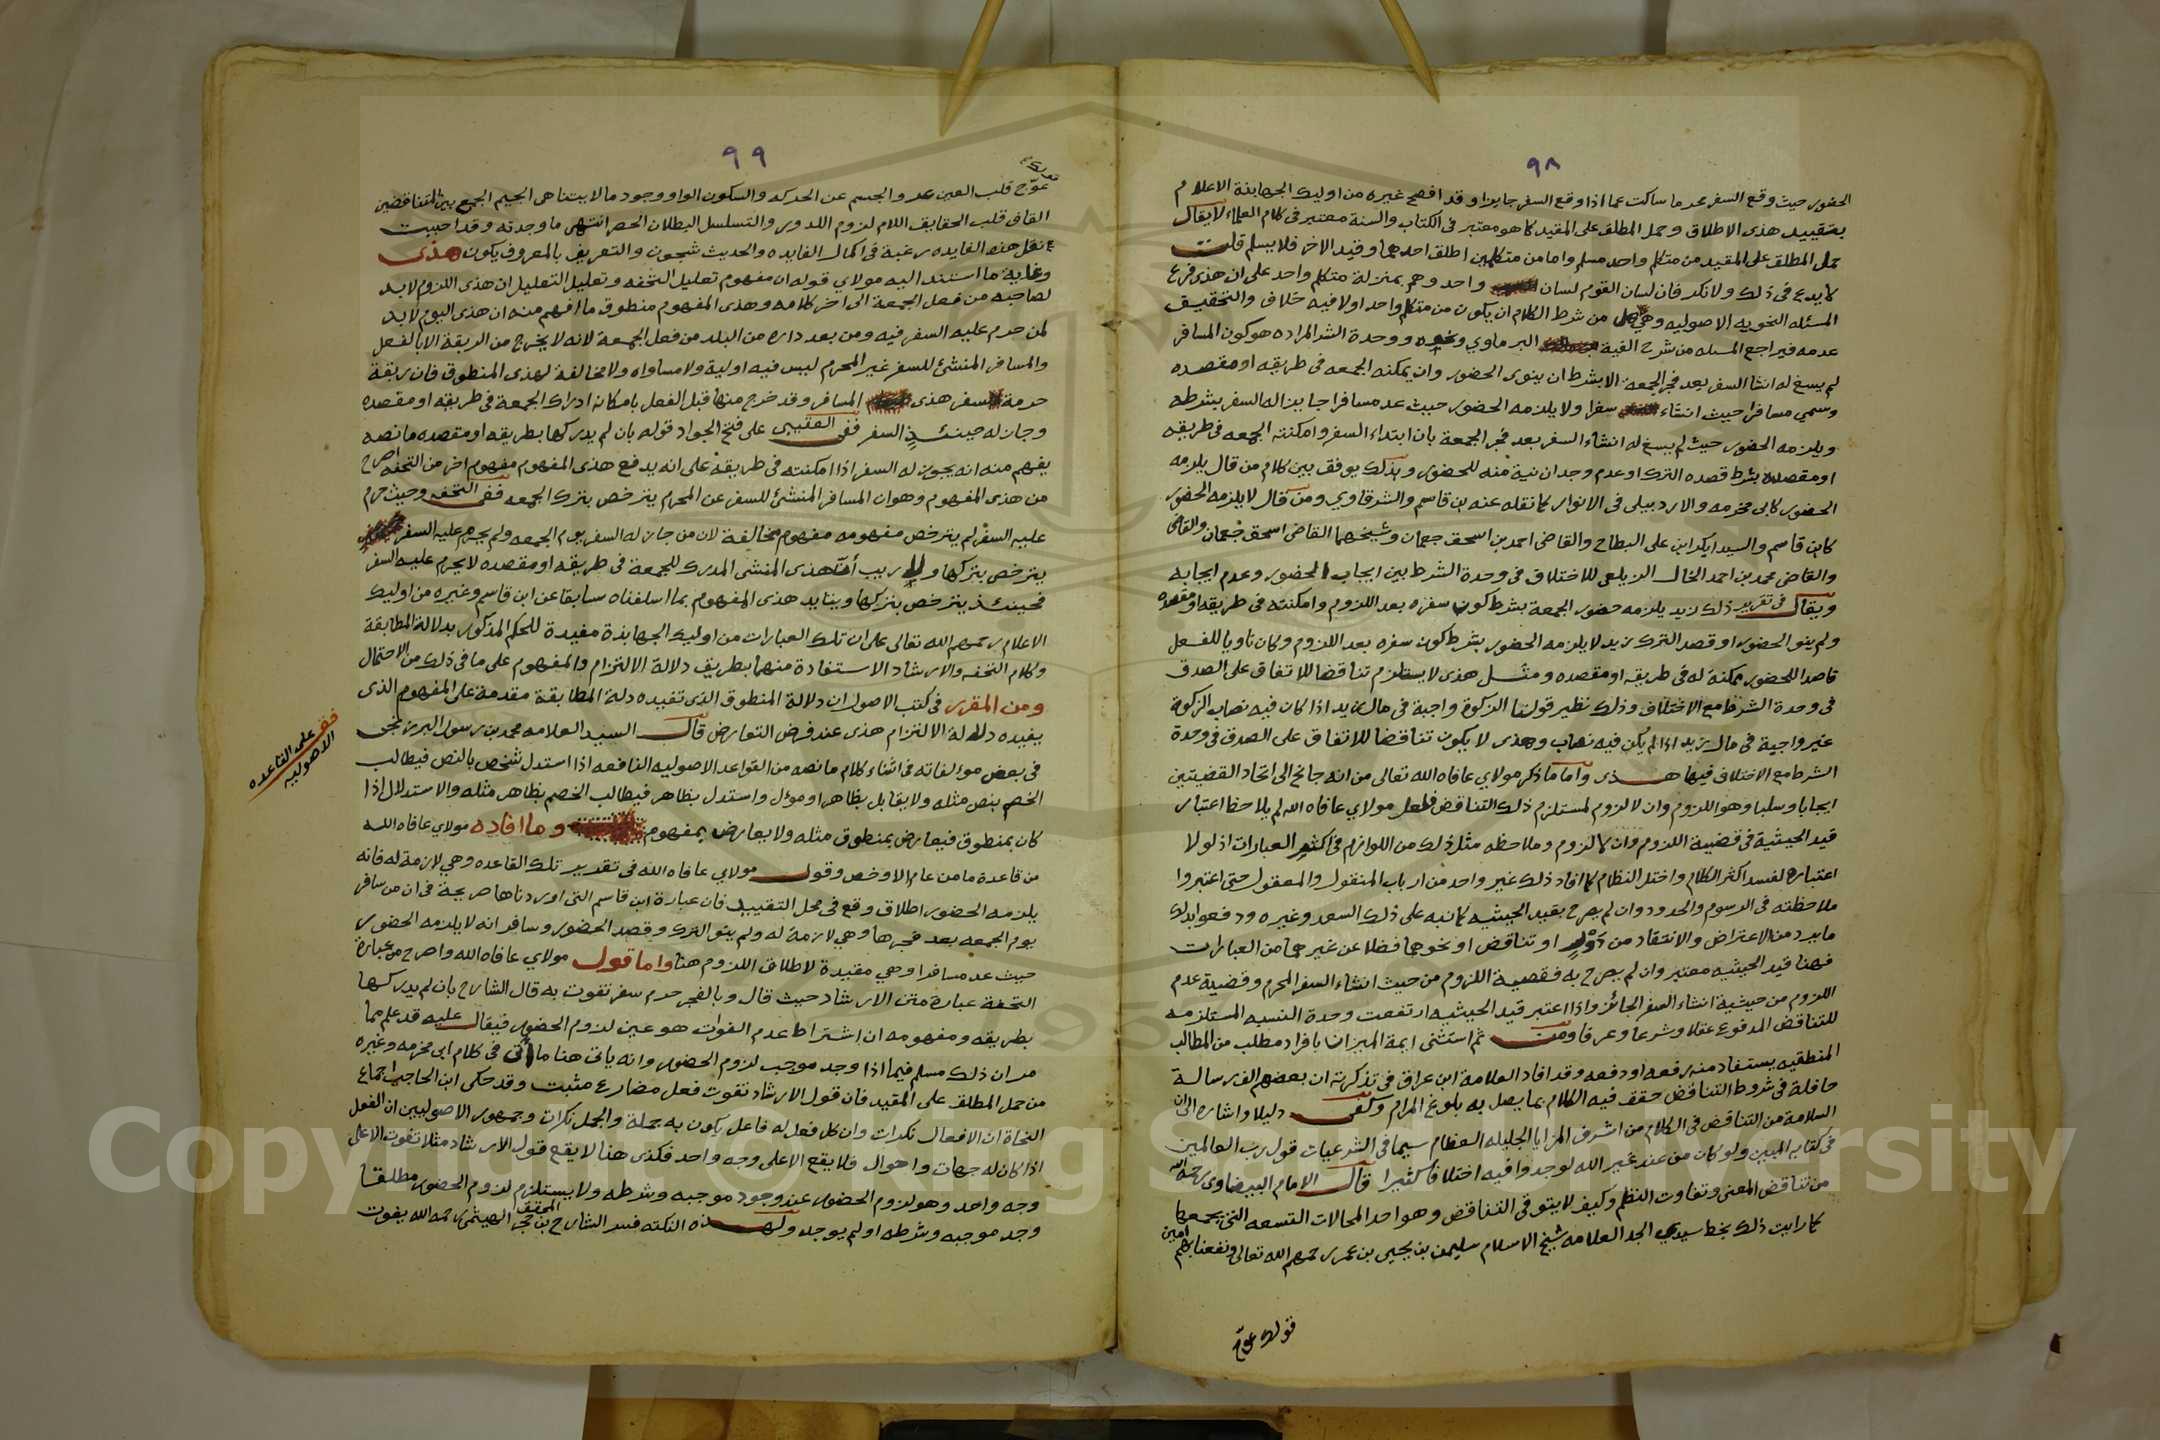 ٩٨
الحضور حيث وقع السفر محرما ساكت عما اذا وقع السفر جايزا وقد افصح غيره من اوليك الجهابذة الاعلام
بتقييد هذى الاطلاق وحمل المطلق على المقيد كما هو معتبر فى الكتاب والسنة معتبر فى كلام العلماء لا يقال
حمل المطلق على المقيد من متكلم واحد مسلم واما من متكلمين اطلق احدهما وقيد الاخر فلا يسلم قلت
لا بدع فى ذلك ولا نكر فان لسان القوم لسان واحد وهم بمنزلة متكلم واحد على ان هذى فرع
المسئله النحويه الاصوليه وهي هل من شرط الكلام ان يكون من متكلم واحد اولا فيه خلاف والتحقيق
عدمه فيراجع المسئله من شرح الفية البرماوي وغيره ووحدة الشرط المراده هو كون المسافر
لم يسغ له انشا السفر بعد فجر الجمعة الا بشرط ان ينوى الحضور وان يمكنه الجمعه فى طريقه او مقصده
وسمي مسافرا حيث انشاء سفرا ولا يلزمه الحضور حيث عد مسافرا جايزا له السفر بشرطه
ويلزمه الحضور حيث لم يسغ له انشاء السفر بعد فجر الجمعة بان ابتداء السفر وامكنته الجمعه فى طريقه
او مقصده بشرط قصده الترك او عدم وجدان نية منه للحضور وبذلك يوفق بين كلام من قال يلزمه
الحضور كابى مخرمه والاردبيلى فى الانوار كما نقله عنه بن قاسم والشرقاوي ومن قال لا يلزمه الحضور
كابن قاسم والسيد ابكر ابن على البطاح والقاضى احمد بن اسحق جعمان وشيخهما القاضى اسحق جعمان والقاضى
والقاضى محمد بن احمد الخال الزيلعى للاختلاف فى وحدة الشرط بين ايجاب الحضور وعدم ايجابه
ويقال فى تقرير ذلك زيد يلزمه حضور الجمعة بشرط كون سفره بعد اللزوم وامكنته فى طريقه او مقصده
ولم ينو الحضور او قصد الترك زيد لا يلزمه الحضور بشرط كون سفره بعد اللزوم وكان ناويا للفعل
قاصدا للحضور يمكنه له فى طريقه او مقصده ومثل هذى لا يستلزم تناقضا للاتفاق على الصدق
فى وحدة الشرط مع الاختلاف وذلك نظير قولنا الزكوة واجبة فى مال زيد اذا كان فيه نصاب الزكوة
غير واجبة فى مال زيد اذا لم يكن فيه نصاب وهذى لا يكون تناقضا للاتفاق على الصدق فى وحدة
الشرط مع الاختلاف فيها هذى واما ما ذكر مولاي عافاه الله تعالى من انه جانح الى اتحاد القضيتين
ايجابا وسلبا وهو اللزوم وان لا لزوم لمستلزم ذلك التناقض فلعل مولاي عافاه الله لم يلاحظ اعتبار
قيد الحيثية فى قضيية اللزوم وان لا لزوم وملاحظه مثل ذلك من اللوازم فى اكثر العبارات اذ لولا
اعتباره لفسد اكثر الكلام واختل النظام كما افاد ذلك غير واحد من ارباب المنقول والمعقول حتى اعتبروا
ملاحظته فى الرسوم والحدود وان لم يصرح بقيد الحيثيه كما نبه على ذلك السعد وغيره ودفعوا بذلك
ما يرد من الاعتراض والانتقاد من دور او تناقض او نحوهما فضلا عن غيرهما من العبارات
فهنا قيد الحيثيه معتبر وان لم يصرح به فقضيية اللزوم من حيث انشاء السفر المحرم وقضية عدم
اللزوم من حيثية انشاء السفر الجائز واذا اعتبر قيد الحيثيه ارتفعت وحدة النسبه المستلزمه
للتناقض المدفوع عقلا وشرعا وعرفا ومن ثم استثنى ايمة الميزان بافراد مطلب من المطالب
المنطقيه يستفاد منه رفعه او دفعه وقد افاد العلامة ابن عراق فى تذكرته ان بعضهم الف رسالة
حافلة فى شروط التناقض حقق فيه الكلام بما يصل به بلوغ المرام وكفى دليلا واشاره الى ان
السلامة من التناقض فى الكلام من اشرف المزايا الجليله العظام سيما فى الشرعيات قول رب العالمين
فى كتابه المبين ولو كان من عند غير الله لوجدوا فيه اختلافا كثيرا قال الامام البيضاوى رحمه الله
من تناقض المعنى وتفاوت النظم وكيف لا يتوقى التناقض وهو احد المحالات التسعه التى يجمعها
كما رايت ذلك بخط سيدي الجد العلامه شيخ الاسلام سليمن بن يحيى بن عمر رحمهم الله تعالى ونفعنا بهم امين
قولك عوّج
٩٩
عوّج قلب العين عد والجسم عن الحركه والسكون الواو وجود ما لا يتناهى الجيم الجمع بين المتناقضين
القاف قلب الحقايق اللام لزوم الدور والتسلسل البطلان الحصر انتهى ما وجدته وقد احببت
نقل هذه الفايده رغبة فى اكمال الفايده والحديث شجون والتعريف بالمعروف يكون هذى
وغاية ما استند اليه مولاي قوله ان مفهوم تعليل التحفه وتعليل التعليل ان هذى اللزوم لا بد
لصاحبه من فعل الجمعة الى اخر كلامه وهذى المفهوم منطوق ما افهم منه ان هذى اليوم لا بد
لمن حرم عليه السفر فيه ومن بعد داره من البلد من فعل الجمعة لانه لا يخرج من الربقة الا بالفعل
والمسافر المنشئ للسفر غير المحرم ليس فيه اولية ولا مساواه ولا مخالفة لهذى المنطوق فان ربقة
حرمة السفر هذى المسافر وقد خرج منها قبل الفعل بامكان ادراك الجمعة فى طريقه او مقصده
وجاز له حينئذٍ السفر ففى العقيبى على فتح الجواد قوله بان لم يدركها بطريقه او مقصده ما نصه
يفهم منه انه يجوز له السفر اذا امكنته فى طريقه على انه يدفع هذى المفهوم مفهوم اخر من التحفه اصرح
من هذى المفهوم وهو ان المسافر المنشئ للسفر عن المحرم يترخص بترك الجمعه ففى التحفه وحيث حرم
عليه السفر لم يترخص مفهومه مفهوم مخالفة لان من جاز له السفر يوم الجمعه ولم يحرم عليه السفر
يترخص بتركها ولا ريب أنّ هذى المنشى المدرك للجمعة فى طريقه او مقصده لا يحرم عليه السفر
فحينئذ يترخص بتركها ويتايد هذى المفهوم بما اسلفناه سابقا عن ابن قاسم وغيره من اوليك
الاعلام رحمهم الله تعالى على ان تلك العبارات من اوليك الجهابذة مفيدة للحكم المذكور بدلالة المطابقة
وكلام التحفه والارشاد الاستفادة منهما بطريق دلالة الالتزام والمفهوم على ما فى ذلك من الاحتمال
ومن المقرر فى كتب الاصول ان دلالة المنطوق الذى تفيده دلة المطابقة مقدمة على المفهوم الذى
يفيده دلالة الالتزام هذى عند فرض التعارض قال السيد العلامه محمد بن رسول البرزنجى
فى بعض مولفاته فى اثناء كلام ما نصه من القواعد الاصوليه النافعه اذا استدل شخص بالنص فيطالب
الخصم بنص مثله ولا يقابل بظاهر او مؤل واستدل بظاهر فيطالب الخصم بظاهر مثله والاستدلال اذا
كان بمنطوق فيعارض بمنطوق مثله ولا يعارض بمفهوم وما افاده مولاي عافاه الله
من قاعدة ما من عام الا وخص وقول مولاي عافاه الله فى تقدير تلك القاعده وهي لازمة له فانه
يلزمه الحضور اطلاق وقع فى محل التقييد فان عبارة ابن قاسم التى اوردناها صريحة فى ان من سافر
يوم الجمعه بعد فجرها وهي لازمة له ولم ينو الترك وقصد الحضور وسافر انه لا يلزمه الحضور
حيث عد مسافرا وهي مقيدة لاطلاق اللزوم هنا واما قول مولاي عافاه الله واصرح من عبارة
التحفة عبارة متن الارشاد حيث قال وبالفجر حرم سفر تفوت به قال الشارح بان لم يدركها
بطريقه ومفهومه ان اشتراط عدم الفوات هو عين لزوم الحضور فيقال عليه قد علم مما
مر ان ذلك مسلم فيما اذا وجد موجب لزوم الحضور وانه ياتى هنا ما اتى فى كلام ابى مخرمه وغيره
من حمل المطلق على المقيد فان قول الارشاد تفوت فعل مضارع مثبت وقد حكى ابن الحاجب اجماع
النحاة ان الافعال نكرات وان كل فعل له فاعل يكون به جملة والجمل نكرات وجمهور الاصوليين ان الفعل
اذا كان له جهات واحوال فلا يقع الا على وجه واحد فكذى هنا لا يقع قول الارشاد مثلا تفوت الا على
وجه واحد وهو لزوم الحضور عند وجود موجبه وشرطه ولا يستلزم لزوم الحضور مطلقا
وجد موجبه وشرطه او لم يوجد ولهذه النكته فسر الشارح المحقق بن حجر الهيثمى رحمه الله يفوت
قف على القاعده
الاصوليه